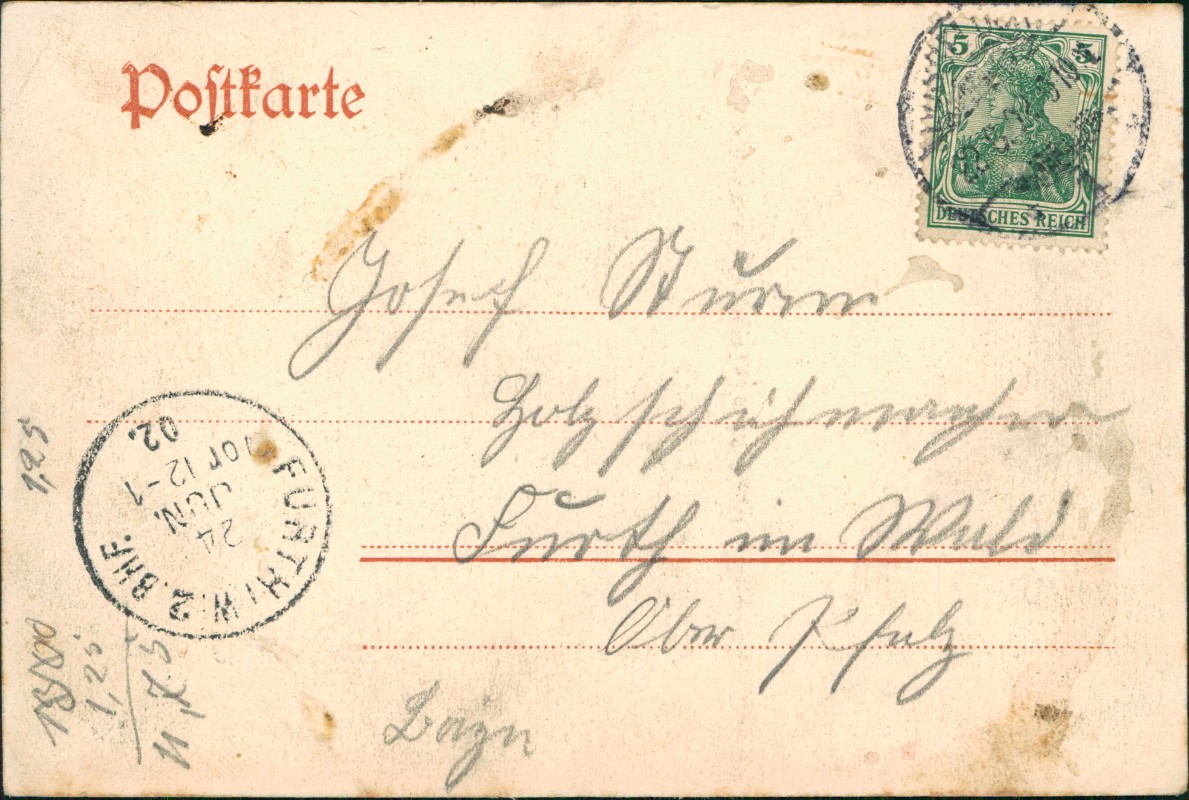 Postkarte
5 5
DEUTSCHES REICH
Josef Sturm
Holzschuhmacher
Furth im Wald
Ober Pfalz
FURTH I W. 2. BHF.
24
JUN.
Vor 12-1
02.
1,25
1,25
11,75